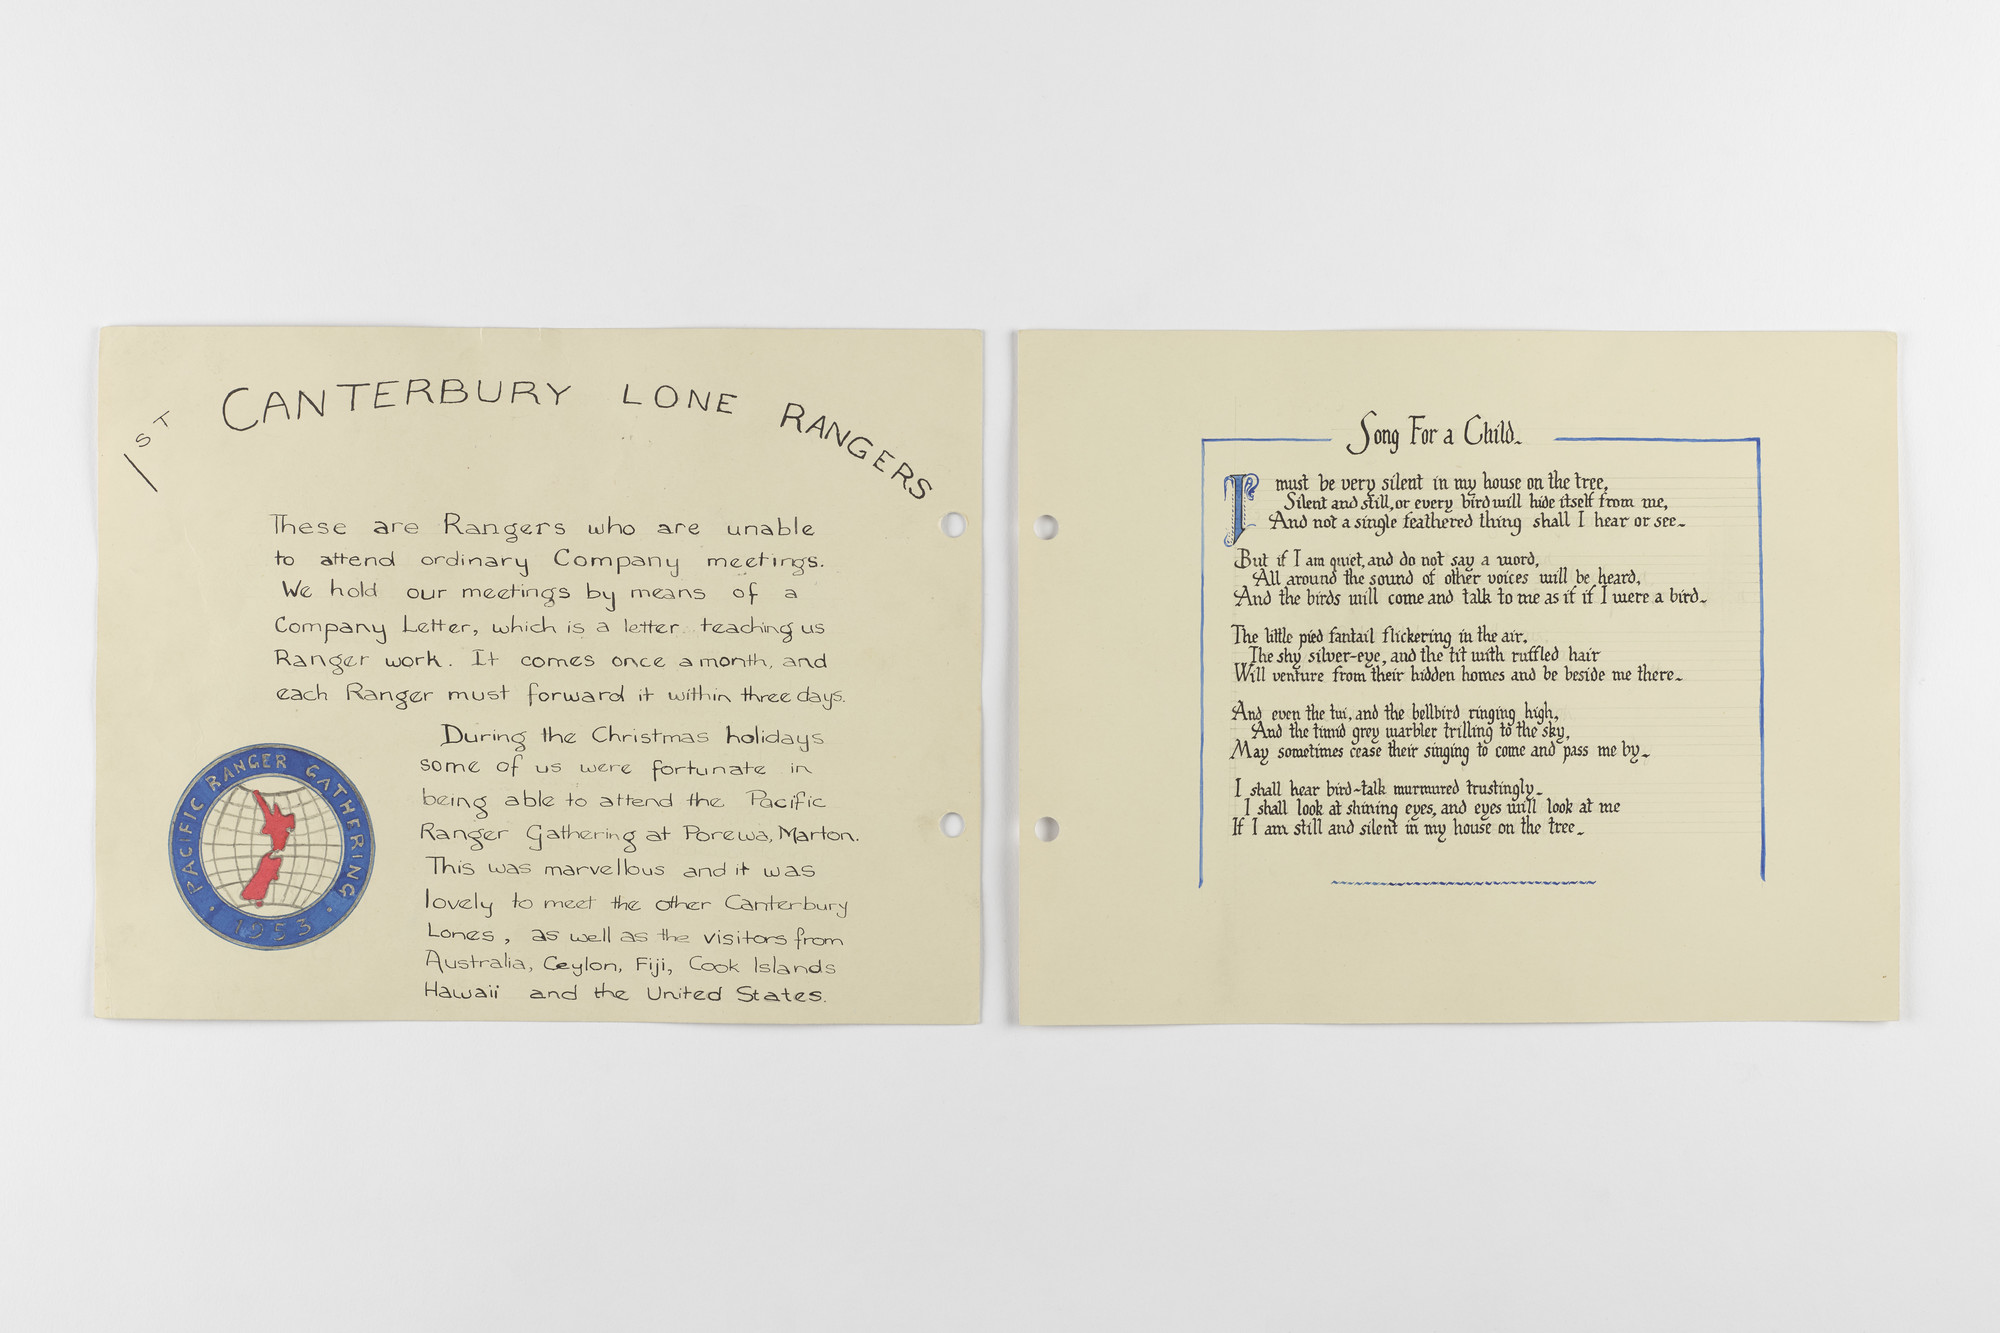 1ST CANTERBURY LONE RANGERS
These are Rangers who are unable
to attend ordinary Company meetings.
We hold our meetings by means of a
Company Letter, which is a letter teaching us
Ranger work. It comes once a month, and
each Ranger must forward it within three days.
During the Christmas holidays
some of us were fortunate in
being able to attend the Pacific
Ranger Gathering at Porewa, Marton.
This was marvellous and it was
lovely to meet the other Canterbury
Lones, as well as the visitors from
Australia, Ceylon, Fiji, Cook Islands
Hawaii and the United States.
PACIFIC RANGER GATHERING
· 1953 ·
Song For a Child.
I must be very silent in my house on the tree,
Silent and still, or every bird will hide itself from me,
And not a single feathered thing shall I hear or see.
But if I am quiet, and do not say a word,
All around the sound of other voices will be heard,
And the birds will come and talk to me as if if I were a bird.
The little pied fantail flickering in the air,
The shy silver-eye, and the tit with ruffled hair
Will venture from their hidden homes and be beside me there.
And even the tui, and the bellbird ringing high,
And the timid grey warbler trilling to the sky,
May sometimes cease their singing to come and pass me by.
I shall hear bird-talk murmured trustingly.
I shall look at shining eyes, and eyes will look at me
If I am still and silent in my house on the tree.